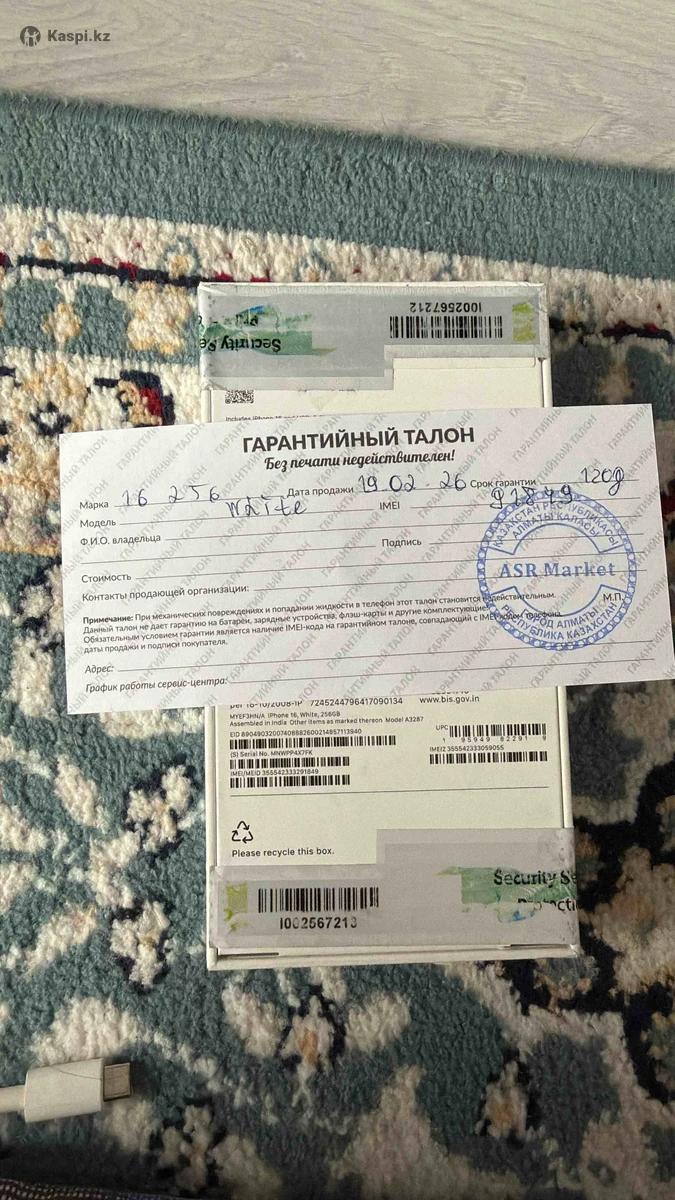 Kaspi.kz
I002567212
Security Se
ГАРАНТИЙНЫЙ ТАЛОН
Без печати недействителен!
Марка 16 256 Дата продажи 19.02.26 Срок гарантии 120д
Модель White IMEI 91849
Ф.И.О. владельца
Подпись
Стоимость
Контакты продающей организации:
КАЗАХСТАН РЕСПУБЛИКАСЫ
АЛМАТЫ КАЛАСЫ
ASR Market
ГОРОД АЛМАТЫ
РЕСПУБЛИКА КАЗАХСТАН
М.П.
Примечание: При механических повреждениях и попадании жидкости в телефон этот талон становится недействительным.
Данный талон не дает гарантию на батареи, зарядные устройства, флэш-карты и другие комплектующие.
Обязательным условием гарантии является наличие IMEI-кода на гарантийном талоне, совпадающий с IMEI-кодом телефона,
даты продажи и подписи покупателя.
Адрес:
График работы сервис-центра:
per 18-10/2008-IP 7245244796417090134 www.bis.gov.in
MYEF3HN/A iPhone 16, White, 256GB
Assembled in India Other items as marked thereon Model A3287
EID 89049032007408882600214857113940
UPC
1 95949 82291 9
(S) Serial No. MNWPP4X7FK
IMEI2 355542333059055
IMEI/MEID 355542333291849
Please recycle this box.
Security Se
I002567213